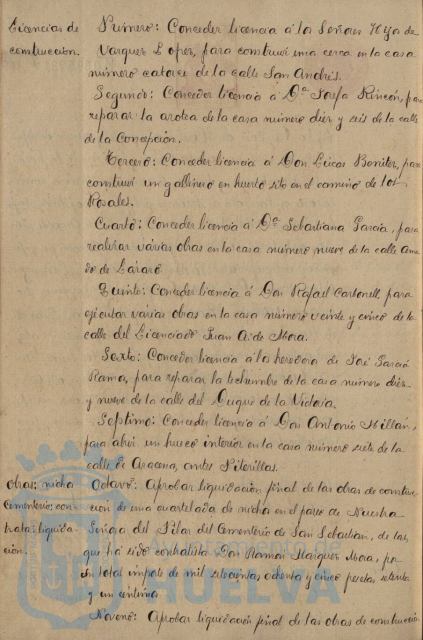 Licencias de
construcción.
Primero: Conceder licencia á los Señores Hijo de
Vazquez Lopez, para construir una cerca en la casa
número catorce de la calle San Andrés.
Segundo: Conceder licencia á Dª Josefa Rincón, para
reparar la azotea de la casa número diez y seis de la calle
de la Concepción.
Tercero: Conceder licencia á Don Lucas Benitez, para
construir un gallinero en huerto sito en el camino de los
Rosales.
Cuarto: Conceder licencia á Dª Sebastiana García, para
realizar várias obras en la casa número nueve de la calle Ama
do de Lázaro
Quinto: Conceder licencia á Don Rafael Carbonell, para
ejecutar várias obras en la casa número veinte y cinco de la
calle del Licenciado Juan A. de Mora.
Sexto: Conceder licencia á los herederos de José García
Ramos, para reparar la techumbre de la casa número diez
y nueve de la calle del Duque de la Victoria.
Septimo: Conceder licencia á Don Antonio Millán,
para abrir un hueco interior en la casa número siete de la
calle de Aracena, antes Piterillas.
Obras: nichos
Cementerio: con
trata: liquida-
cion.
Octavo: Aprobar liquidación final de las obras de construc-
ción de una cuartelada de nichos en el paseo de Nuestra
Señora del Pilar del Cementerio de San Sebastian, de las
que ha sido contratista Don Ramón Marquez Mora, por
un total importe de mil setecientas ochenta y cinco pesetas setenta
y un centimos
Noveno: Aprobar liquidación final de las obras de construcción
HUELVA